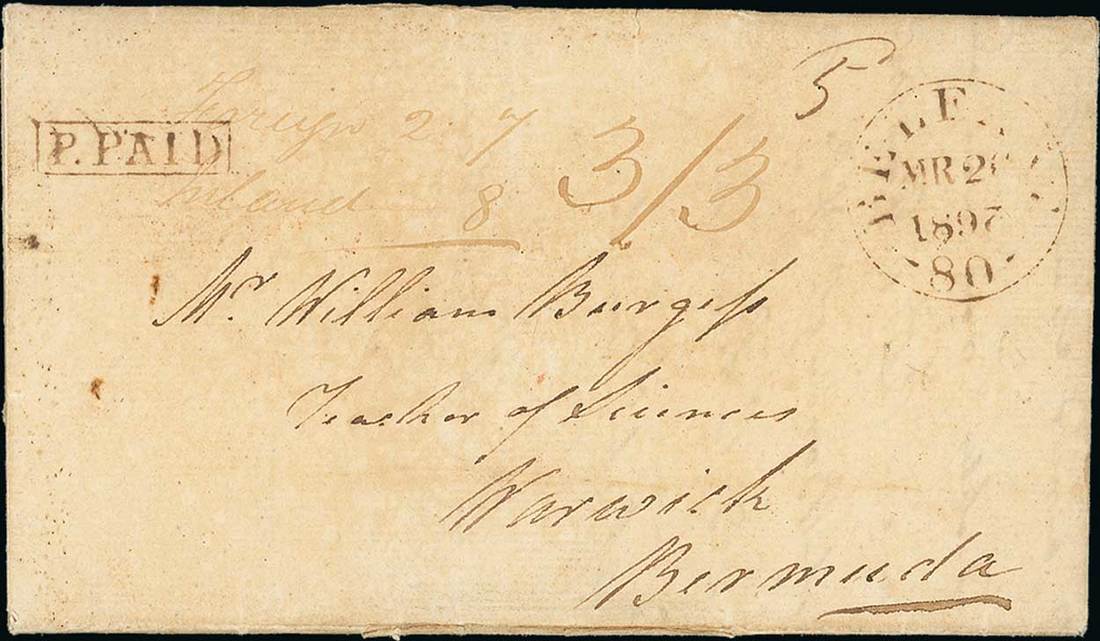 5
P. PAID
Foreign 2 7
Inland 8
3/3
BELFAST
MR 2
1827
80
Mr. William Burgess
Teacher of Sciences
Warwick
Bermuda